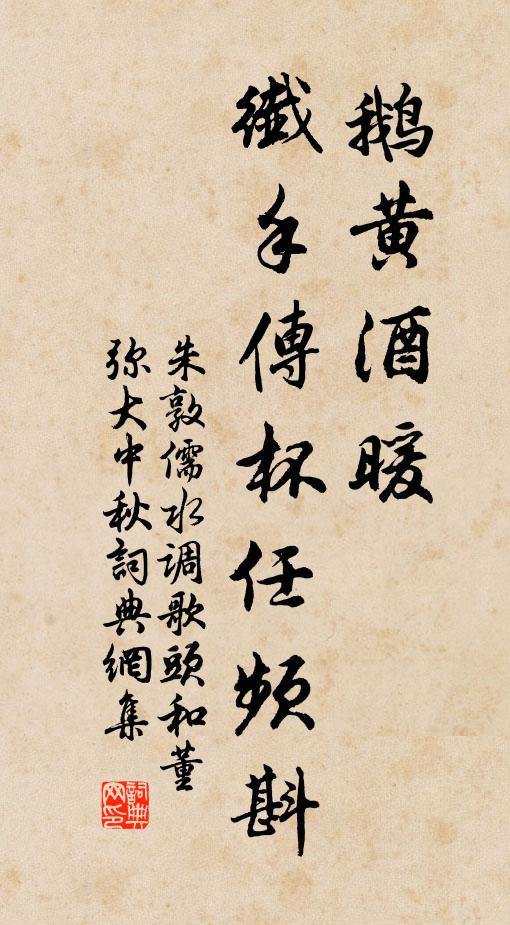 鵝黄酒暖
纖手傳杯任頻斟
朱敦儒水调歌頭和董
弥大中秋詞典網集
詞典网印